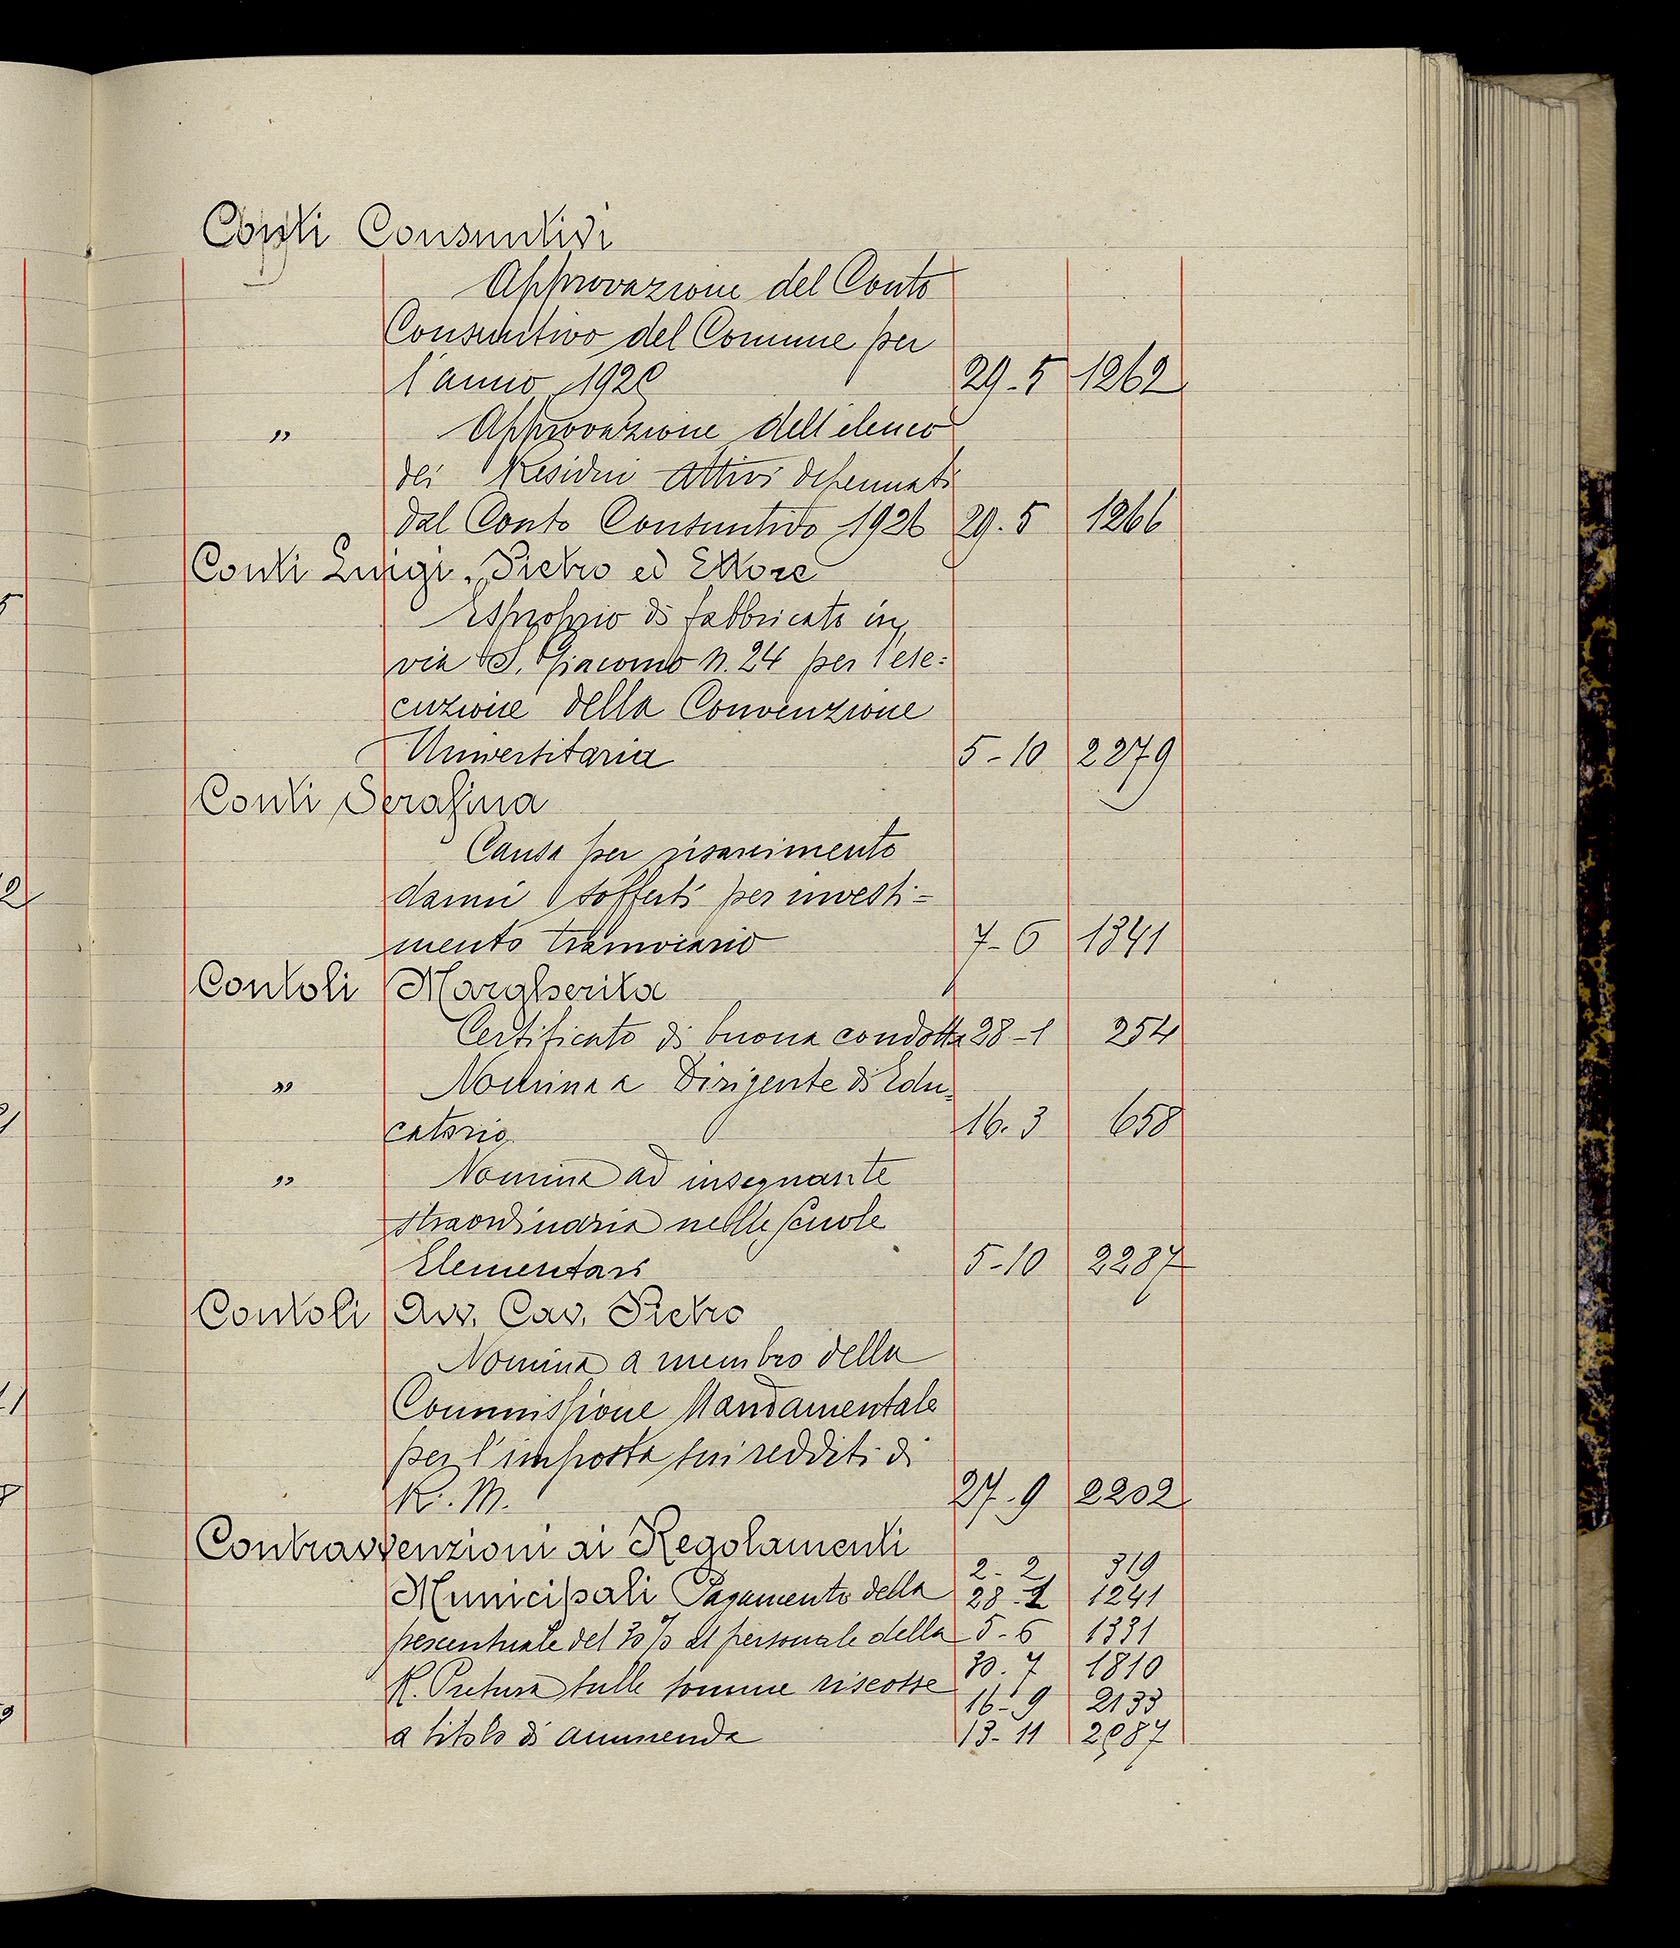 Conti Consuntivi
Approvazione del Conto
Consuntivo del Comune per
l'anno 1926 29-5 1262
„ Approvazione dell'elenco
dei Residui attivi depennati
dal Conto Consuntivo 1926 29.5 1266
Conti Luigi, Pietro ed Ettore
Esproprio di fabbricato in
via S. Giacomo n. 24 per l'ese=
cuzione della Convenzione
Universitaria 5-10 2279
Conti Serafina
Causa per risarcimento
danni sofferti per investi=
mento tramviario 7-6 1341
Contoli Margherita
Certificato di buona condotta 28-1 254
„ Nomina a Dirigente di Edu=
catorio 16.3 658
„ Nomina ad insegnante
straordinaria nelle Scuole
Elementari 5-10 2287
Contoli Avv. Cav. Pietro
Nomina a membro della
Commissione Mandamentale
per l'imposta sui redditi di
R. M. 27-9 2202
Contravvenzioni ai Regolamenti
2-2 319
Municipali Pagamento della 28- 1241
percentuale del 30% al personale della 5-6 1331
30.7 1810
R. Pretura sulle somme riscosse
16-9 2133
a titolo di ammenda 13-11